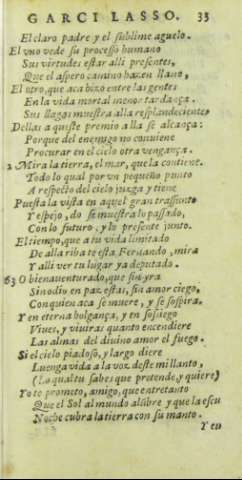 GARCI LASSO. 33
El claro padre y el sublime aguelo.
El vno vede su processo humano
Sus virtudes estar alli presentes,
Que el aspero camino hazen llano,
El otro, que aca hizo entre las gentes
En la vida mortal menor tardança.
Sus llagas muestra alla resplandecientes
Dellas aqueste premio alla se alcança:
Porque del enemigo no conuiene
Procurar en el cielo otra vengança.
Mira la tierra, el mar, que la contiene.
Todo lo qual por vn pequeño punto
A respecto del cielo juzga y tiene
Puesta la vista en aquel gran trassunto
Y espejo, do se muestra lo passado,
Con lo futuro, y lo presente junto.
El tiempo, que a tu vida limitado
De alla riba te esta Fernando, mira
Y alli ver tu lugar ya deputado.
63 O bienauenturado, que sin yra
Sin odio en paz estas, sin amor ciego,
Con quien aca se muere, y se sospira.
Y en eterna holgança, y en sosiego
Viues, y viuiras quanto encendiere
Las almas del diuino amor el fuego.
Si el cielo piadoso, y largo diere
Luenga vida a la voz deste mi llanto,
(Lo qual tu sabes que pretende, y quiere)
Yo te prometo, amigo, que entretanto
Que el Sol al mundo alũbre, y que la escu
Noche cubra la tierra con su manto.
Y en